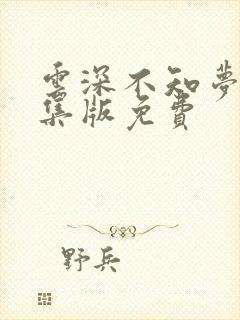 雲深不知夢
集版免費
野兵